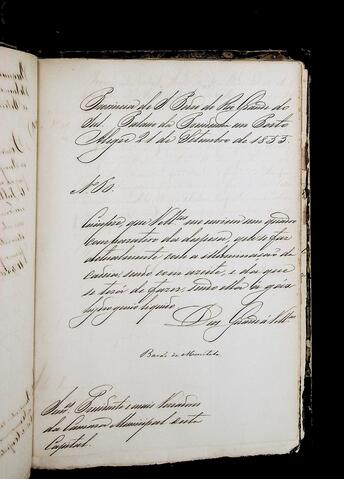 Provincia de S. Pedro do Rio Grande do
Sul. Palacio da Presidencia em Porto
Alegre 21 de Setembro de 1855.
Nº 60.
Cumpre, que Vmces me enviem um quadro
comparativo da despesa, que se faz
actualmente com a illuminação da
cadeia, sendo com azeite, e da que
se terá de fazer, sendo ella a gáz
hydrogenio liquido.
Deos Guarde a Vmces
Barão de Muritiba
Snres Presidente e mais Vereadores
da Camara Municipal desta
Capital.